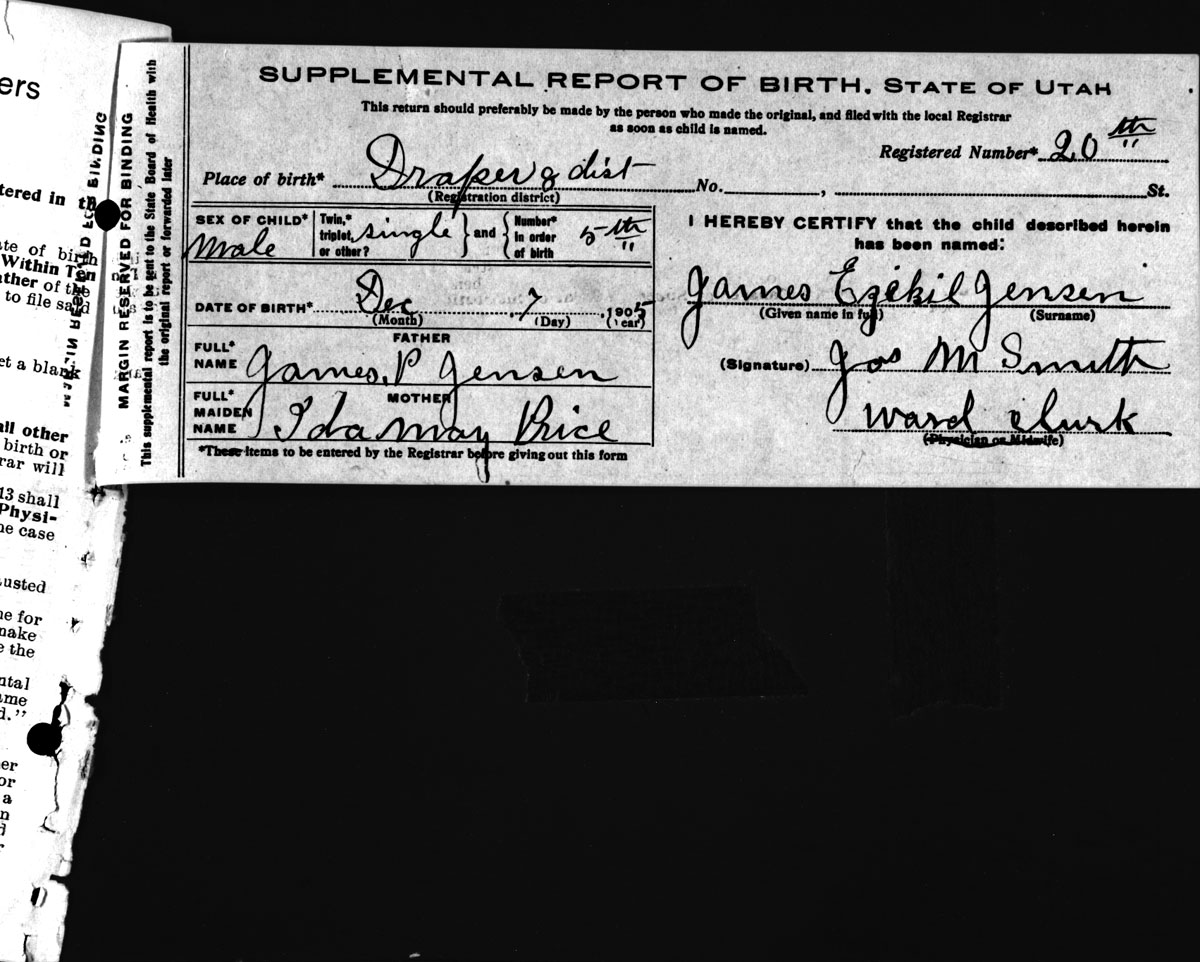 SUPPLEMENTAL REPORT OF BIRTH. STATE OF UTAH
This return should preferably be made by the person who made the original, and filed with the local Registrar
as soon as child is named.
Registered Number* 20th
Place of birth* Draper 8 dist No. , St.
(Registration district)
SEX OF CHILD* Male
Twin,* triplet, or other? single } and { Number* in order of birth 5th
DATE OF BIRTH* Dec 7 1905
(Month) (Day) (Year)
FATHER
FULL* NAME James P Jensen
MOTHER
FULL* MAIDEN NAME Ida May Price
*These items to be entered by the Registrar before giving out this form
I HEREBY CERTIFY that the child described herein
has been named:
James Ezekil Jensen
(Given name in full) (Surname)
(Signature) Jos M Smith
Ward Clurk
(Physician or Midwife)
MARGIN RESERVED FOR BINDING
This supplemental report is to be sent to the State Board of Health with
the original report or forwarded later
ers
tered in
te of birth
Within Ten
ather of the
to file said
et a blank
all other
birth or
rar will
13 shall
Physi-
he case
usted
ne for
make
e the
ntal
ame
d."
er
or
a
n
d
r